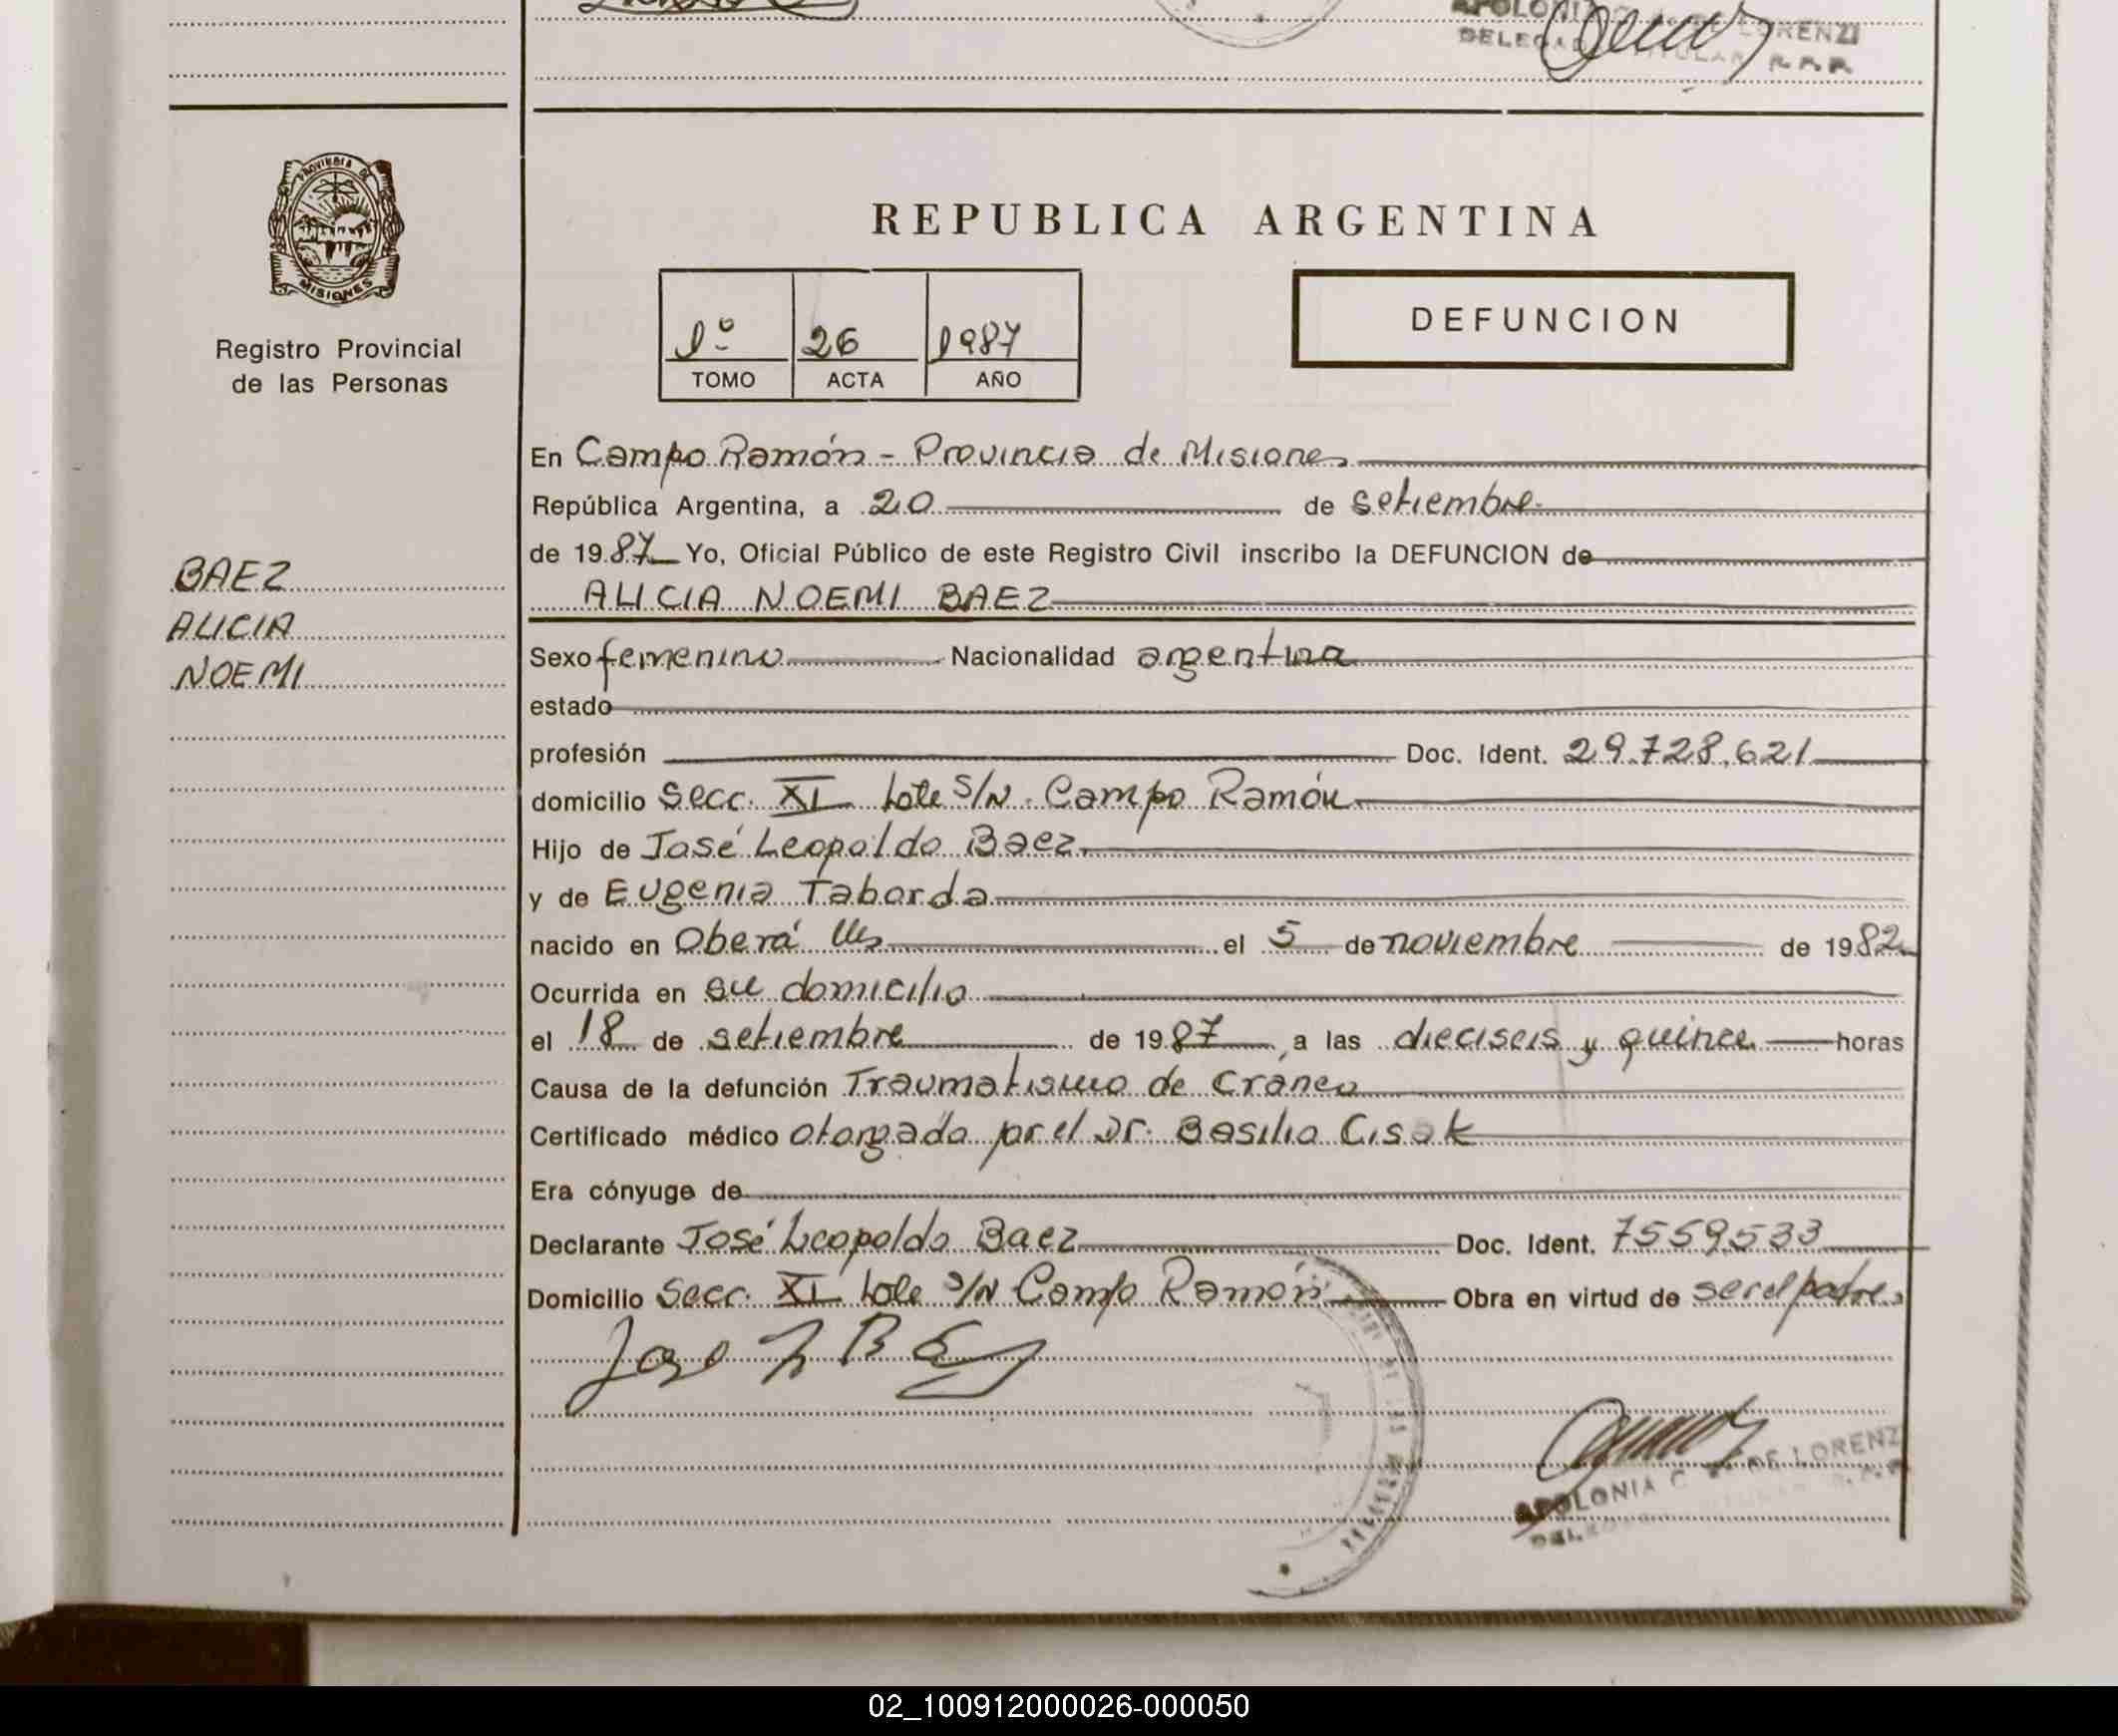 DE LORENZI
R. P. P.
PROVINCIA DE
MISIONES
Registro Provincial
de las Personas
BAEZ
ALICIA
NOEMI
REPUBLICA ARGENTINA
1º 26 1987
TOMO ACTA AÑO
DEFUNCION
En Campo Ramón - Provincia de Misiones
República Argentina, a 20 de setiembre
de 1987 Yo, Oficial Público de este Registro Civil inscribo la DEFUNCION de
ALICIA NOEMI BAEZ
Sexo femenino Nacionalidad argentina
estado
profesión Doc. Ident. 29.728.621
domicilio Secc. XI Lote S/N. Campo Ramón
Hijo de José Leopoldo Baez
y de Eugenia Taborda
nacido en Oberá Mes el 5 de noviembre de 1982
Ocurrida en su domicilio
el 18 de setiembre de 1987, a las dieciseis y quince horas
Causa de la defunción Traumatismo de craneo
Certificado médico otorgado por el Dr. Basilio Cisak
Era cónyuge de
Declarante José Leopoldo Baez Doc. Ident. 7559533
Domicilio Secc. XI Lote S/N Campo Ramón Obra en virtud de ser el padre
APOLONIA C. DE LORENZI
02_100912000026-000050